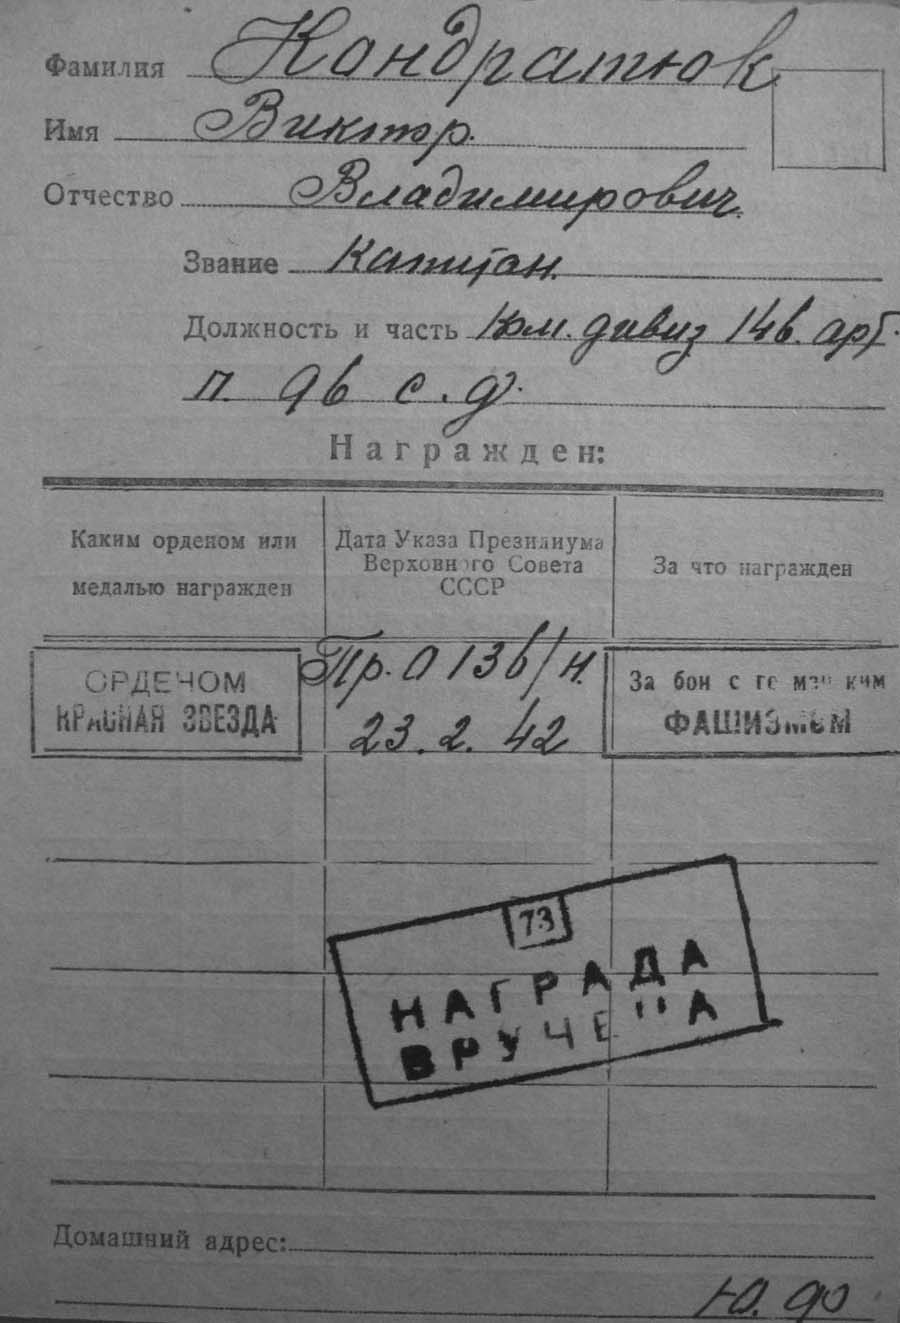 Фамилия Кондратюк
Имя Виктор.
Отчество Владимирович.
Звание Капитан.
Должность и часть Ком. дивиз 146. арт.
п. 96 с. д.
Награжден:
Каким орденом или
медалью награжден
Дата Указа Президиума
Верховного Совета
СССР
За что награжден
ОРДЕНОМ
КРАСНАЯ ЗВЕЗДА
Пр. 0136/н.
23. 2. 42
За бои с германским
ФАШИЗМОМ
73
НАГРАДА
ВРУЧЕНА
Домашний адрес:
Ю. до